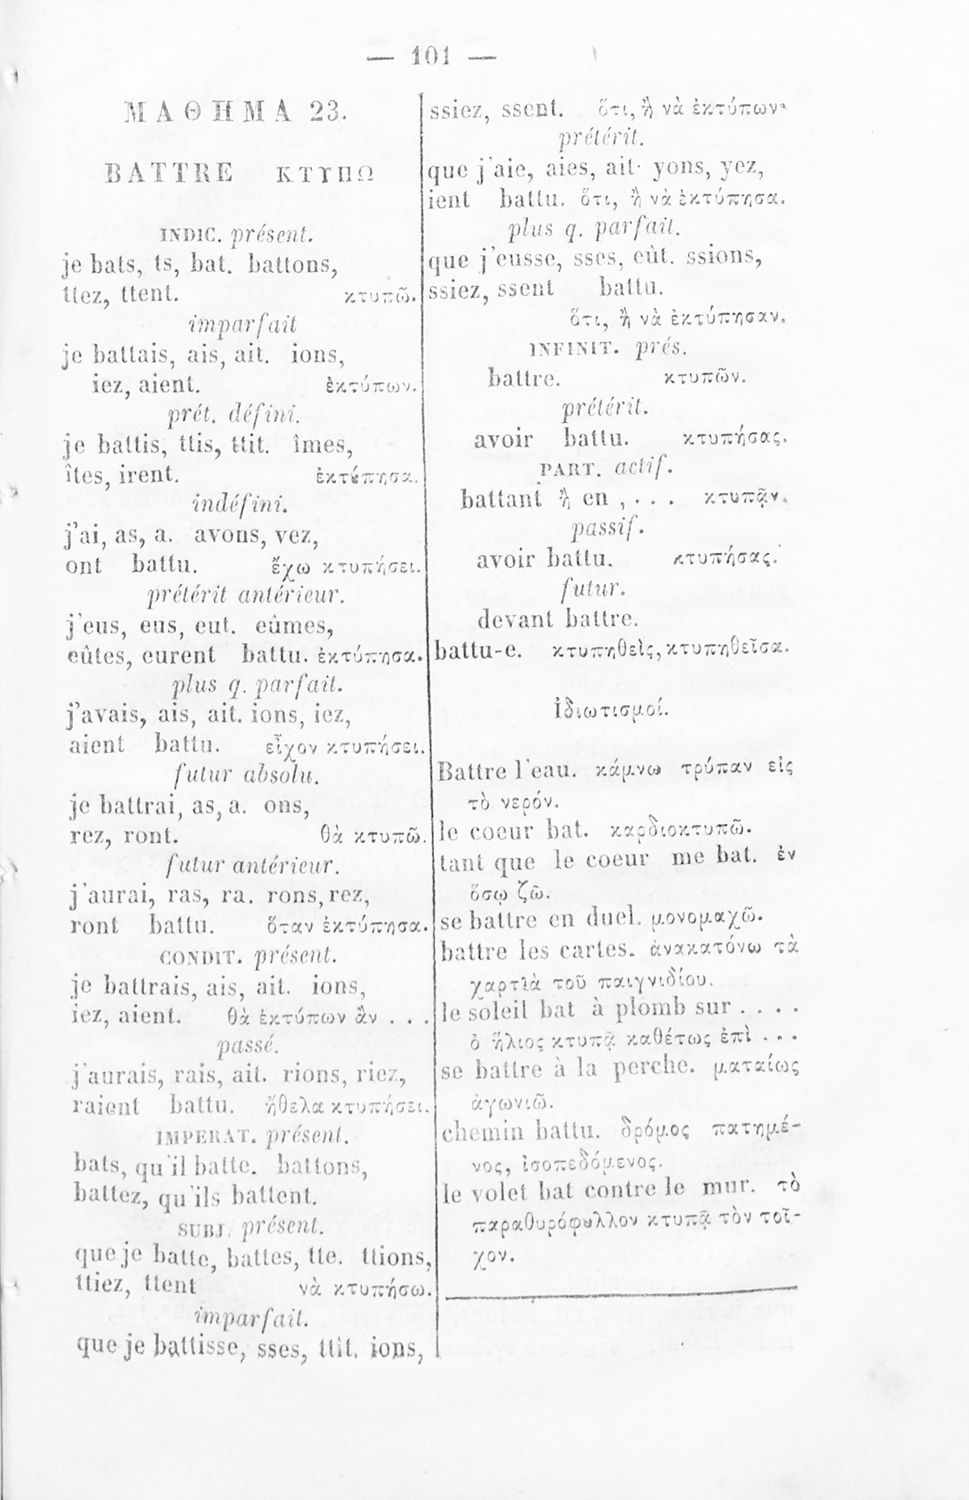 — 101 —
ΜΑΘΗΜΑ 23.
BATTRE ΚΤΥΠΩ
INDIC. présent.
je bats, ts, bat. battons,
ttez, ttent. κτυπῶ.
imparfait
je battais, ais, ait. ions,
iez, aient. ἐκτύπων.
prét. défini.
je battis, ttis, ttit. îmes,
îtes, irent. ἐκτύπησα.
indéfini.
j'ai, as, a. avons, vez,
ont battu. ἔχω κτυπήσει.
prétérit antérieur.
j'eus, eus, eut. eûmes,
eûtes, eurent battu. ἐκτύπησα.
plus q. parfait.
j'avais, ais, ait. ions, iez,
aient battu. εἶχον κτυπήσει.
futur absolu.
je battrai, as, a. ons,
rez, ront. θὰ κτυπῶ.
futur antérieur.
j'aurai, ras, ra. rons, rez,
ront battu. ὅταν ἐκτύπησα.
CONDIT. présent.
je battrais, ais, ait. ions,
iez, aient. θὰ ἐκτύπων ἂν . . .
passé.
j'aurais, rais, ait. rions, riez,
raient battu. ἤθελα κτυπήσει.
IMPERAT. présent.
bats, qu'il batte. battons,
battez, qu'ils battent.
SUBJ. présent.
que je batte, battes, tte. ttions,
ttiez, ttent νὰ κτυπήσω.
imparfait.
que je battisse, sses, ttît. ions,
ssiez, ssent. ὅτι, ἢ νὰ ἐκτύπων
prétérit.
que j'aie, aies, ait· yons, yez,
ient battu. ὅτι, ἢ νὰ ἐκτύπησα.
plus q. parfait.
que j'eusse, sses, eût. ssions,
ssiez, ssent battu.
ὅτι, ἢ νὰ ἐκτύπησαν.
INFINIT. prés.
battre. κτυπῶν.
prétérit.
avoir battu. κτυπήσας.
PART. actif.
battant ἢ en , . . . κτυπᾷν.
passif.
avoir battu. κτυπήσας.
futur.
devant battre.
battu-e. κτυπηθεὶς, κτυπηθεῖσα.
ἰδιωτισμοί.
Battre l'eau. κάμνω τρύπαν εἰς
τὸ νερόν.
le coeur bat. καρδιοκτυπῶ.
tant que le coeur me bat. ἐν
ὅσῳ ζῶ.
se battre en duel. μονομαχῶ.
battre les cartes. ἀνακατόνω τὰ
χαρτιὰ τοῦ παιγνιδίου.
le soleil bat à plomb sur . . . .
ὁ ἥλιος κτυπᾷ καθέτως ἐπὶ . . .
se battre à la perche. ματαίως
ἀγωνιῶ.
chemin battu. δρόμος πατημέ-
νος, ἰσοπεδόμενος.
le volet bat contre le mur. τὸ
παραθυρόφυλλον κτυπᾷ τὸν τοῖ-
χον.